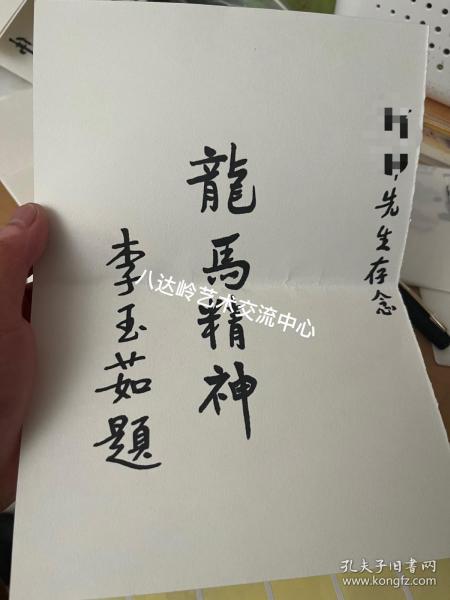 先生存念
龍馬精神
李玉茹題
八达岭艺术交流中心
孔夫子旧书网
www.kongfz.com